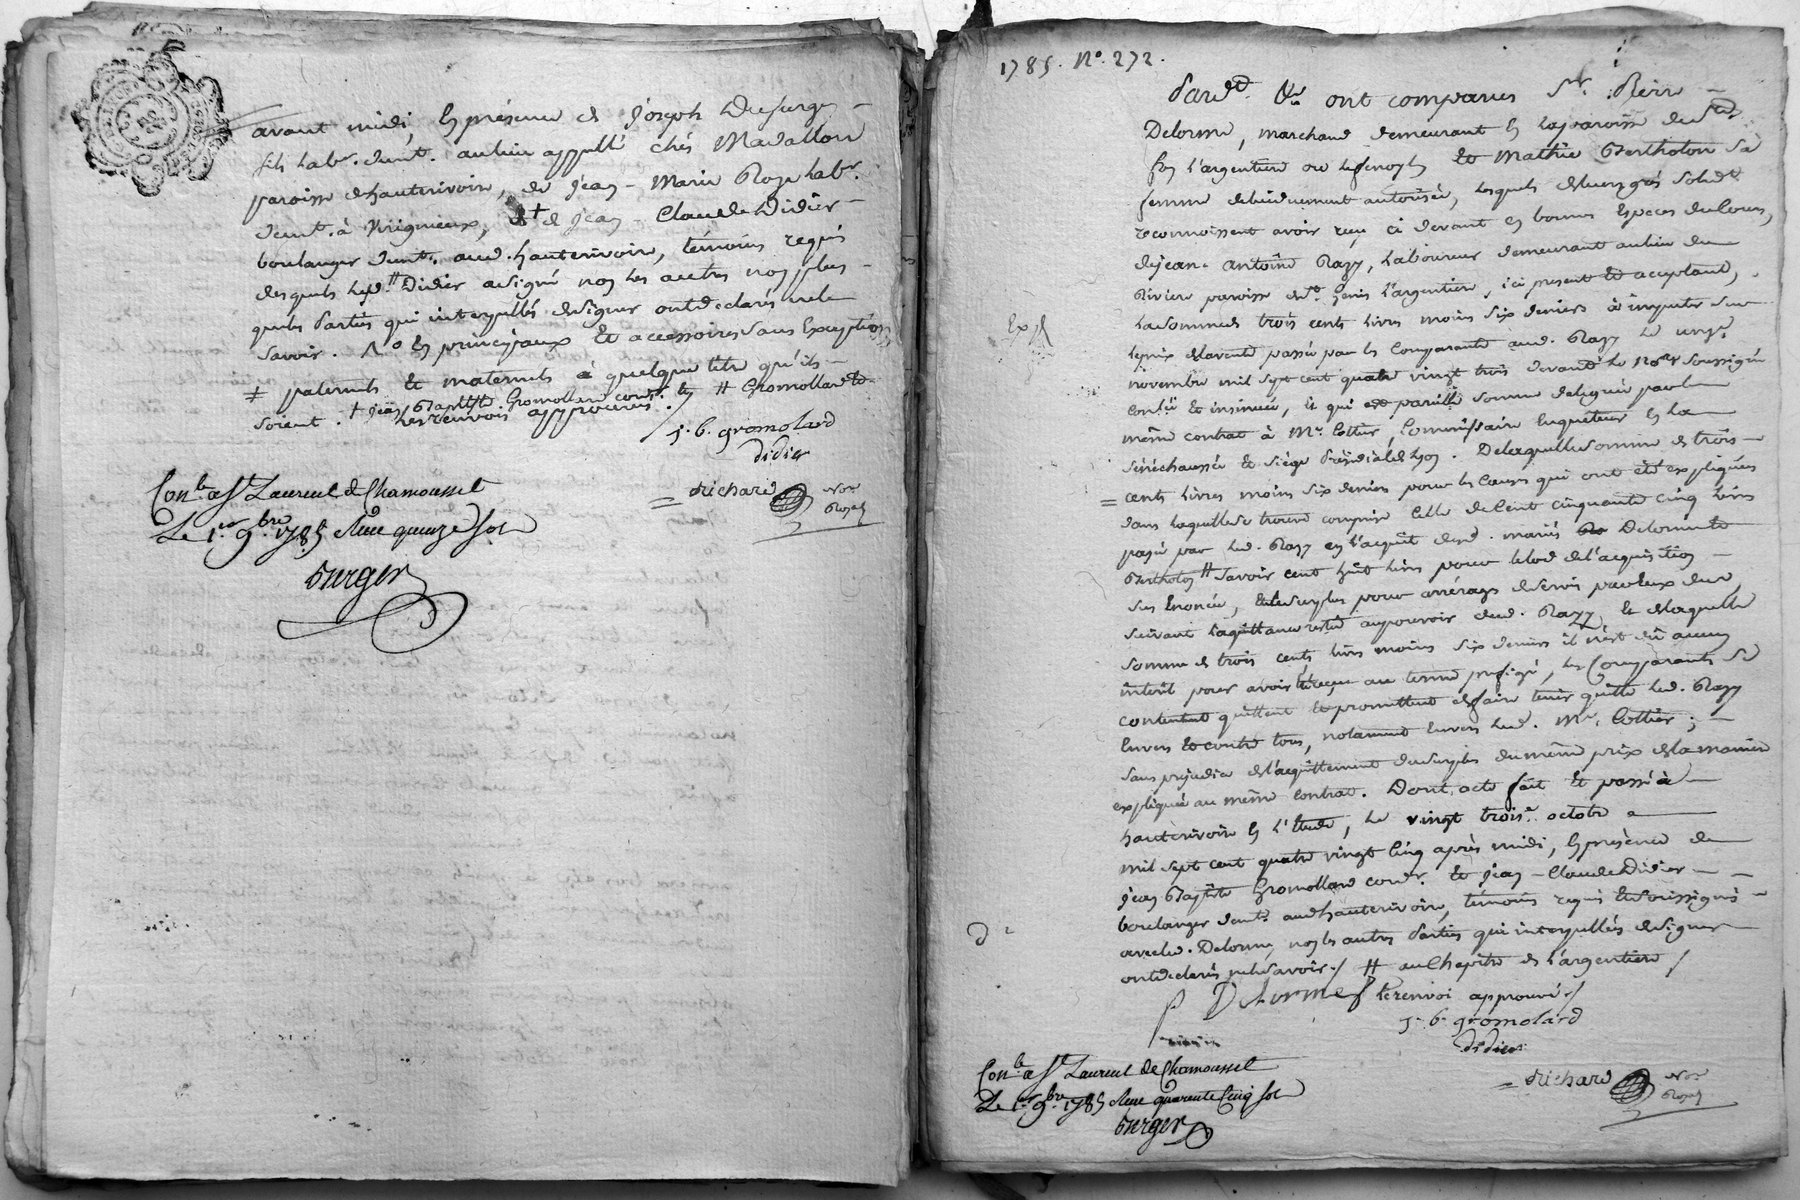 avant midi, En présence de Joseph Dufurger
fils labr. demt. au lieu appellé chés Madallon
paroisse d'hauterivoire, de Jean-Marie Roze labr.
demt. à Virignieux, et + de Jean-Claude Didier
boulanger demt. aud. hauterivoire, témoins requis
desquels led. # Didier a signé non les autres non plus
que les parties qui interpellés de signer ont declarés ne le
savoir. En principaux Et accessoires sans Exception
# paternels Et maternels à quelque titre qu'ils
soient. + jean Baptiste Gromollard cordr. # Gromollard Et
les renvois approuvés
j. b. gromolard
didier
= Richard Nore Royal
Conlé a St Laurent de Chamousset
Le 1er 9bre 1785 Reçu quinze sols
Burger
1785. No. 272.
Pardt. &a ont comparus Sr. Pierre
Delorme, marchand demeurant En la paroisse de St
foy l'argentiere Et Mathie Bertholon sa
femme de lui duement autorisée, lesquels de leurs grés
reconnoissent avoir reçu ci devant En bonnes Especes du Cours,
de jean antoine Razy, laboureur demeurant au lieu de
Riviere paroisse de St. Genis l'argentiere, ici present Et acceptant,
la somme de trois cents livres moins six deniers à imputer sur
Exp.
le prix de la vente passée par les Comparants aud. Razy le
novembre mil sept cent quatre vingt trois devant Le Nore Soussigné
Conlée Et insinuée, Et qui est pareille somme deleguée par le
même contrat à Mr. Cottier, Commissaire Enquéteur En la
sénéchaussée Et siége Présidial de Lyon. De laquelle somme de trois
= cents livres moins six deniers pour les Causes qui ont été expliquées
dans laquelle se trouve comprise Celle de Cent cinquante cinq livres
payée par led. Razy En l'acquit desd. mariés Delorme Et
Bertholon # savoir cent huit livres pour le lod de l'acquisition
sus Enoncée, Et le surplus pour arrérages de servis
suivant la quittance restée au pouvoir dud. Razy, Et de laquelle
somme de trois cents livres moins six deniers il n'est dû aucun
intérêt pour avoir été au terme prefigé, les Comparants se
contentent quittent Et promettent de faire tenir quitte led. Razy
Envers Et contre tous, notament Envers led. Mr. Cottier;
sans prejudice de l'acquittement du surplus du même prix de la maniere
expliquée au même contrat. Dont acte fait Et passé à
hauterivoire En l'Etude, Le vingt trois octobre
mil sept cent quatre vingt Cinq après midi, En présence de
jean Baptiste Gromollard cordr. Et Jean-Claude Didier
boulanger demt. aud. hauterivoire, témoins requis Et soussignés
avec led. Delorme, non les autres Parties qui interpellées de signer
ont declarés ne le savoir./ # au Chapitre de l'argentiere /
P Delorme le renvoi approuvé /
j. b. gromolard
didier
= Richard Nore Royal
Conlé a St Laurent de Chamousset
Le 1er 9bre 1785 Reçu quarente Cinq sols
Burger